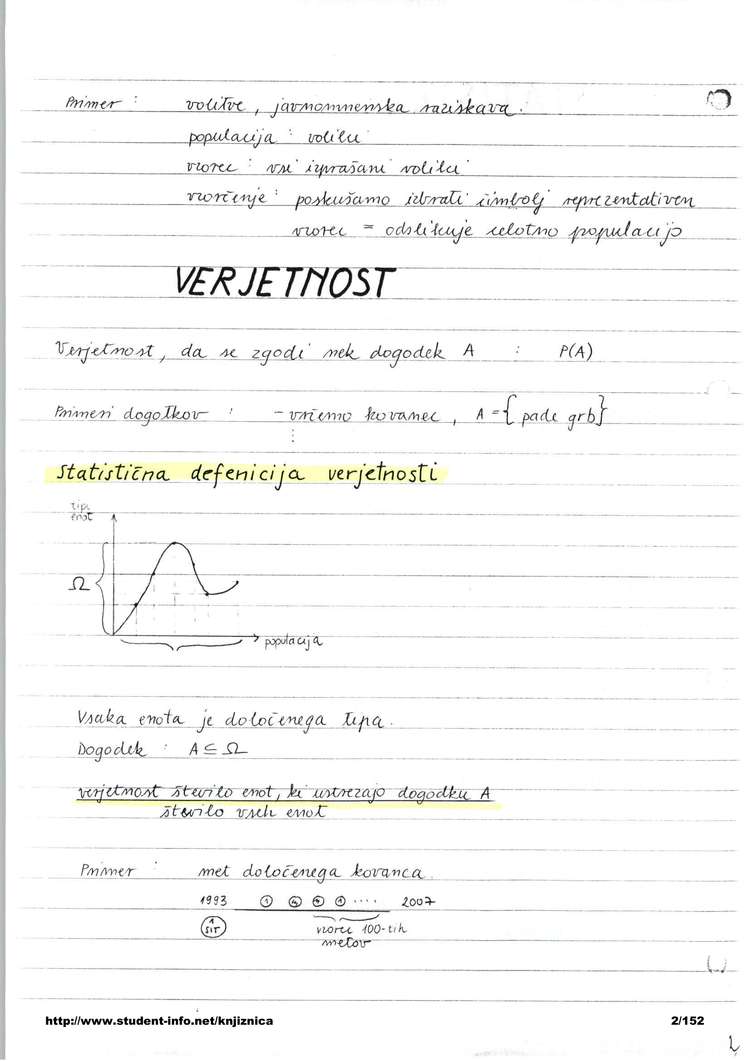 Primer : volitve, javnomnenska raziskava.
populacija : volilci
vzorec : vsi izprašani volilci
vzorčenje : poskušamo izbrati čimbolj reprezentativen
vzorec = odslikuje celotno populacijo
VERJETNOST
Verjetnost, da se zgodi nek dogodek A : P(A)
Primeri dogodkov : - vržemo kovanec, A = { pade grb }
⋮
Statistična defenicija verjetnosti
tipi
enot
Ω
populacija
Vsaka enota je določenega tipa.
Dogodek : A ⊆ Ω
verjetnost število enot, ki ustrezajo dogodku A
število vseh enot
Primer : met določenega kovanca.
1993 .... 2007
1 SIT
vzorec 100-tih
metov
http://www.student-info.net/knjiznica 2/152
2